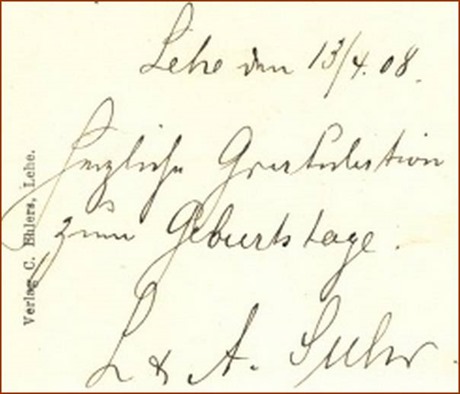 Lehe den 13/4. 08.
Herzliche Gratulation
zum Geburtstage.
L & A. Suhr.
Verlag C. Ehlers, Lehe.